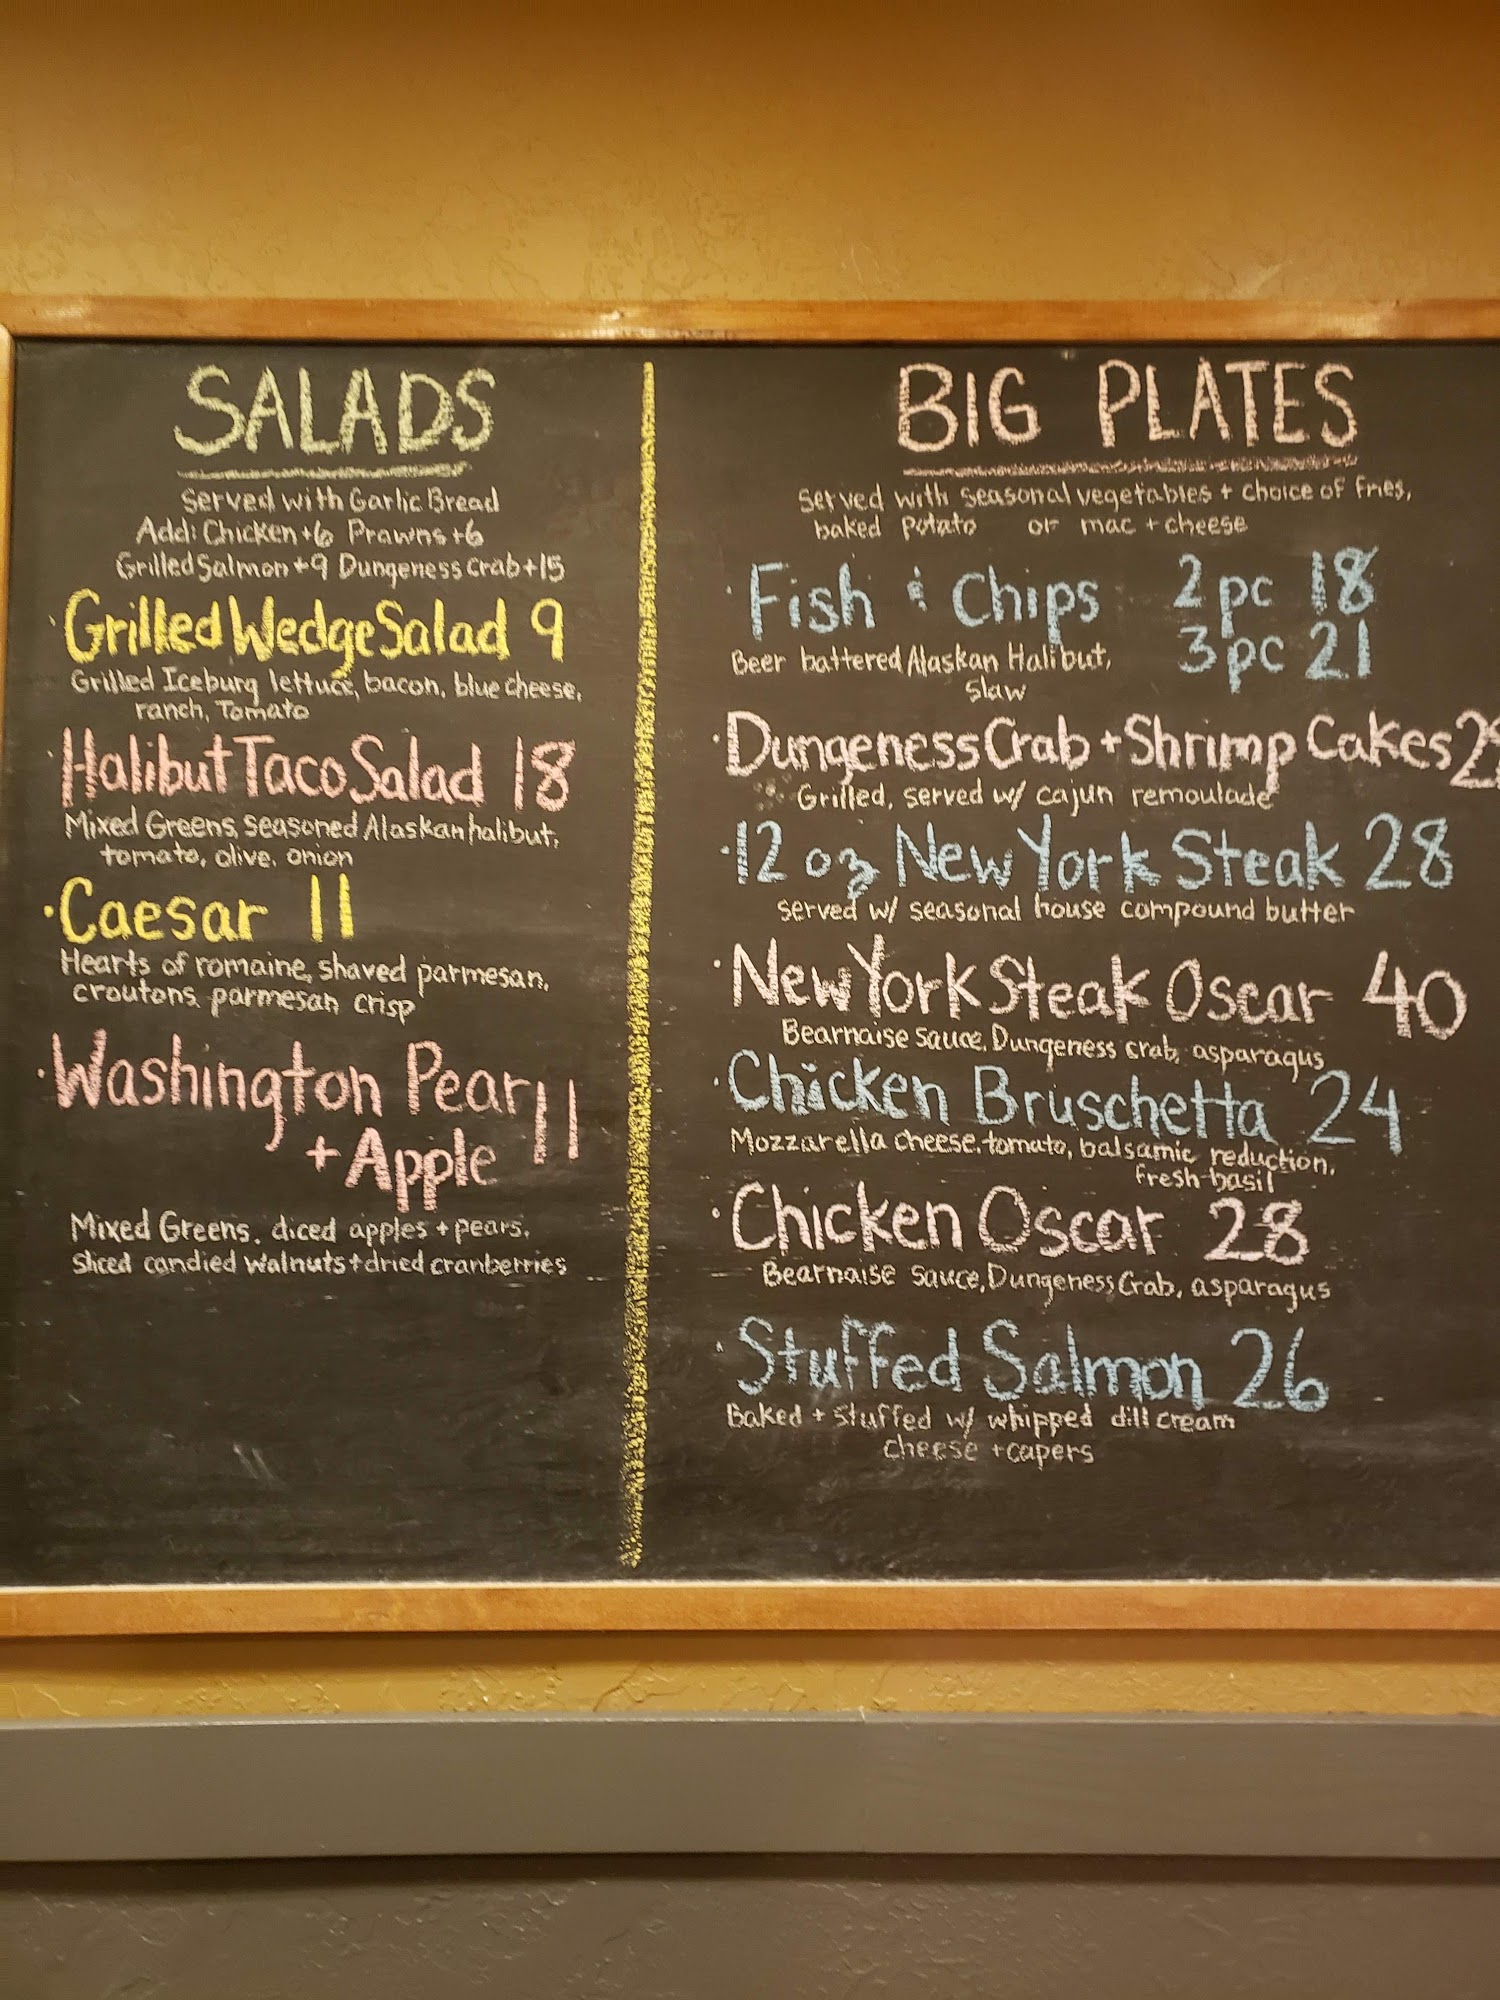 SALADS
served with Garlic Bread
Add: Chicken +6 Prawns +6
Grilled Salmon +9 Dungeness Crab +15
· Grilled Wedge Salad 9
Grilled Iceburg lettuce, bacon, blue cheese,
ranch, Tomato
· Halibut Taco Salad 18
Mixed Greens, seasoned Alaskan halibut,
tomato, olive, onion
· Caesar 11
Hearts of romaine, shaved parmesan,
croutons, parmesan crisp
· Washington Pear
+ Apple 11
Mixed Greens, diced apples + pears,
sliced candied walnuts + dried cranberries
BIG PLATES
served with seasonal vegetables + choice of fries,
baked potato or mac + cheese
· Fish & Chips 2 pc 18
3 pc 21
Beer battered Alaskan Halibut,
slaw
· Dungeness Crab + Shrimp Cakes
Grilled, served w/ cajun remoulade
· 12 oz New York Steak 28
served w/ seasonal house compound butter
· New York Steak Oscar 40
Bearnaise sauce, Dungeness crab, asparagus
· Chicken Bruschetta 24
Mozzarella cheese, tomato, balsamic reduction,
fresh basil
· Chicken Oscar 28
Bearnaise sauce, Dungeness Crab, asparagus
· Stuffed Salmon 26
Baked + stuffed w/ whipped dill cream
cheese + capers